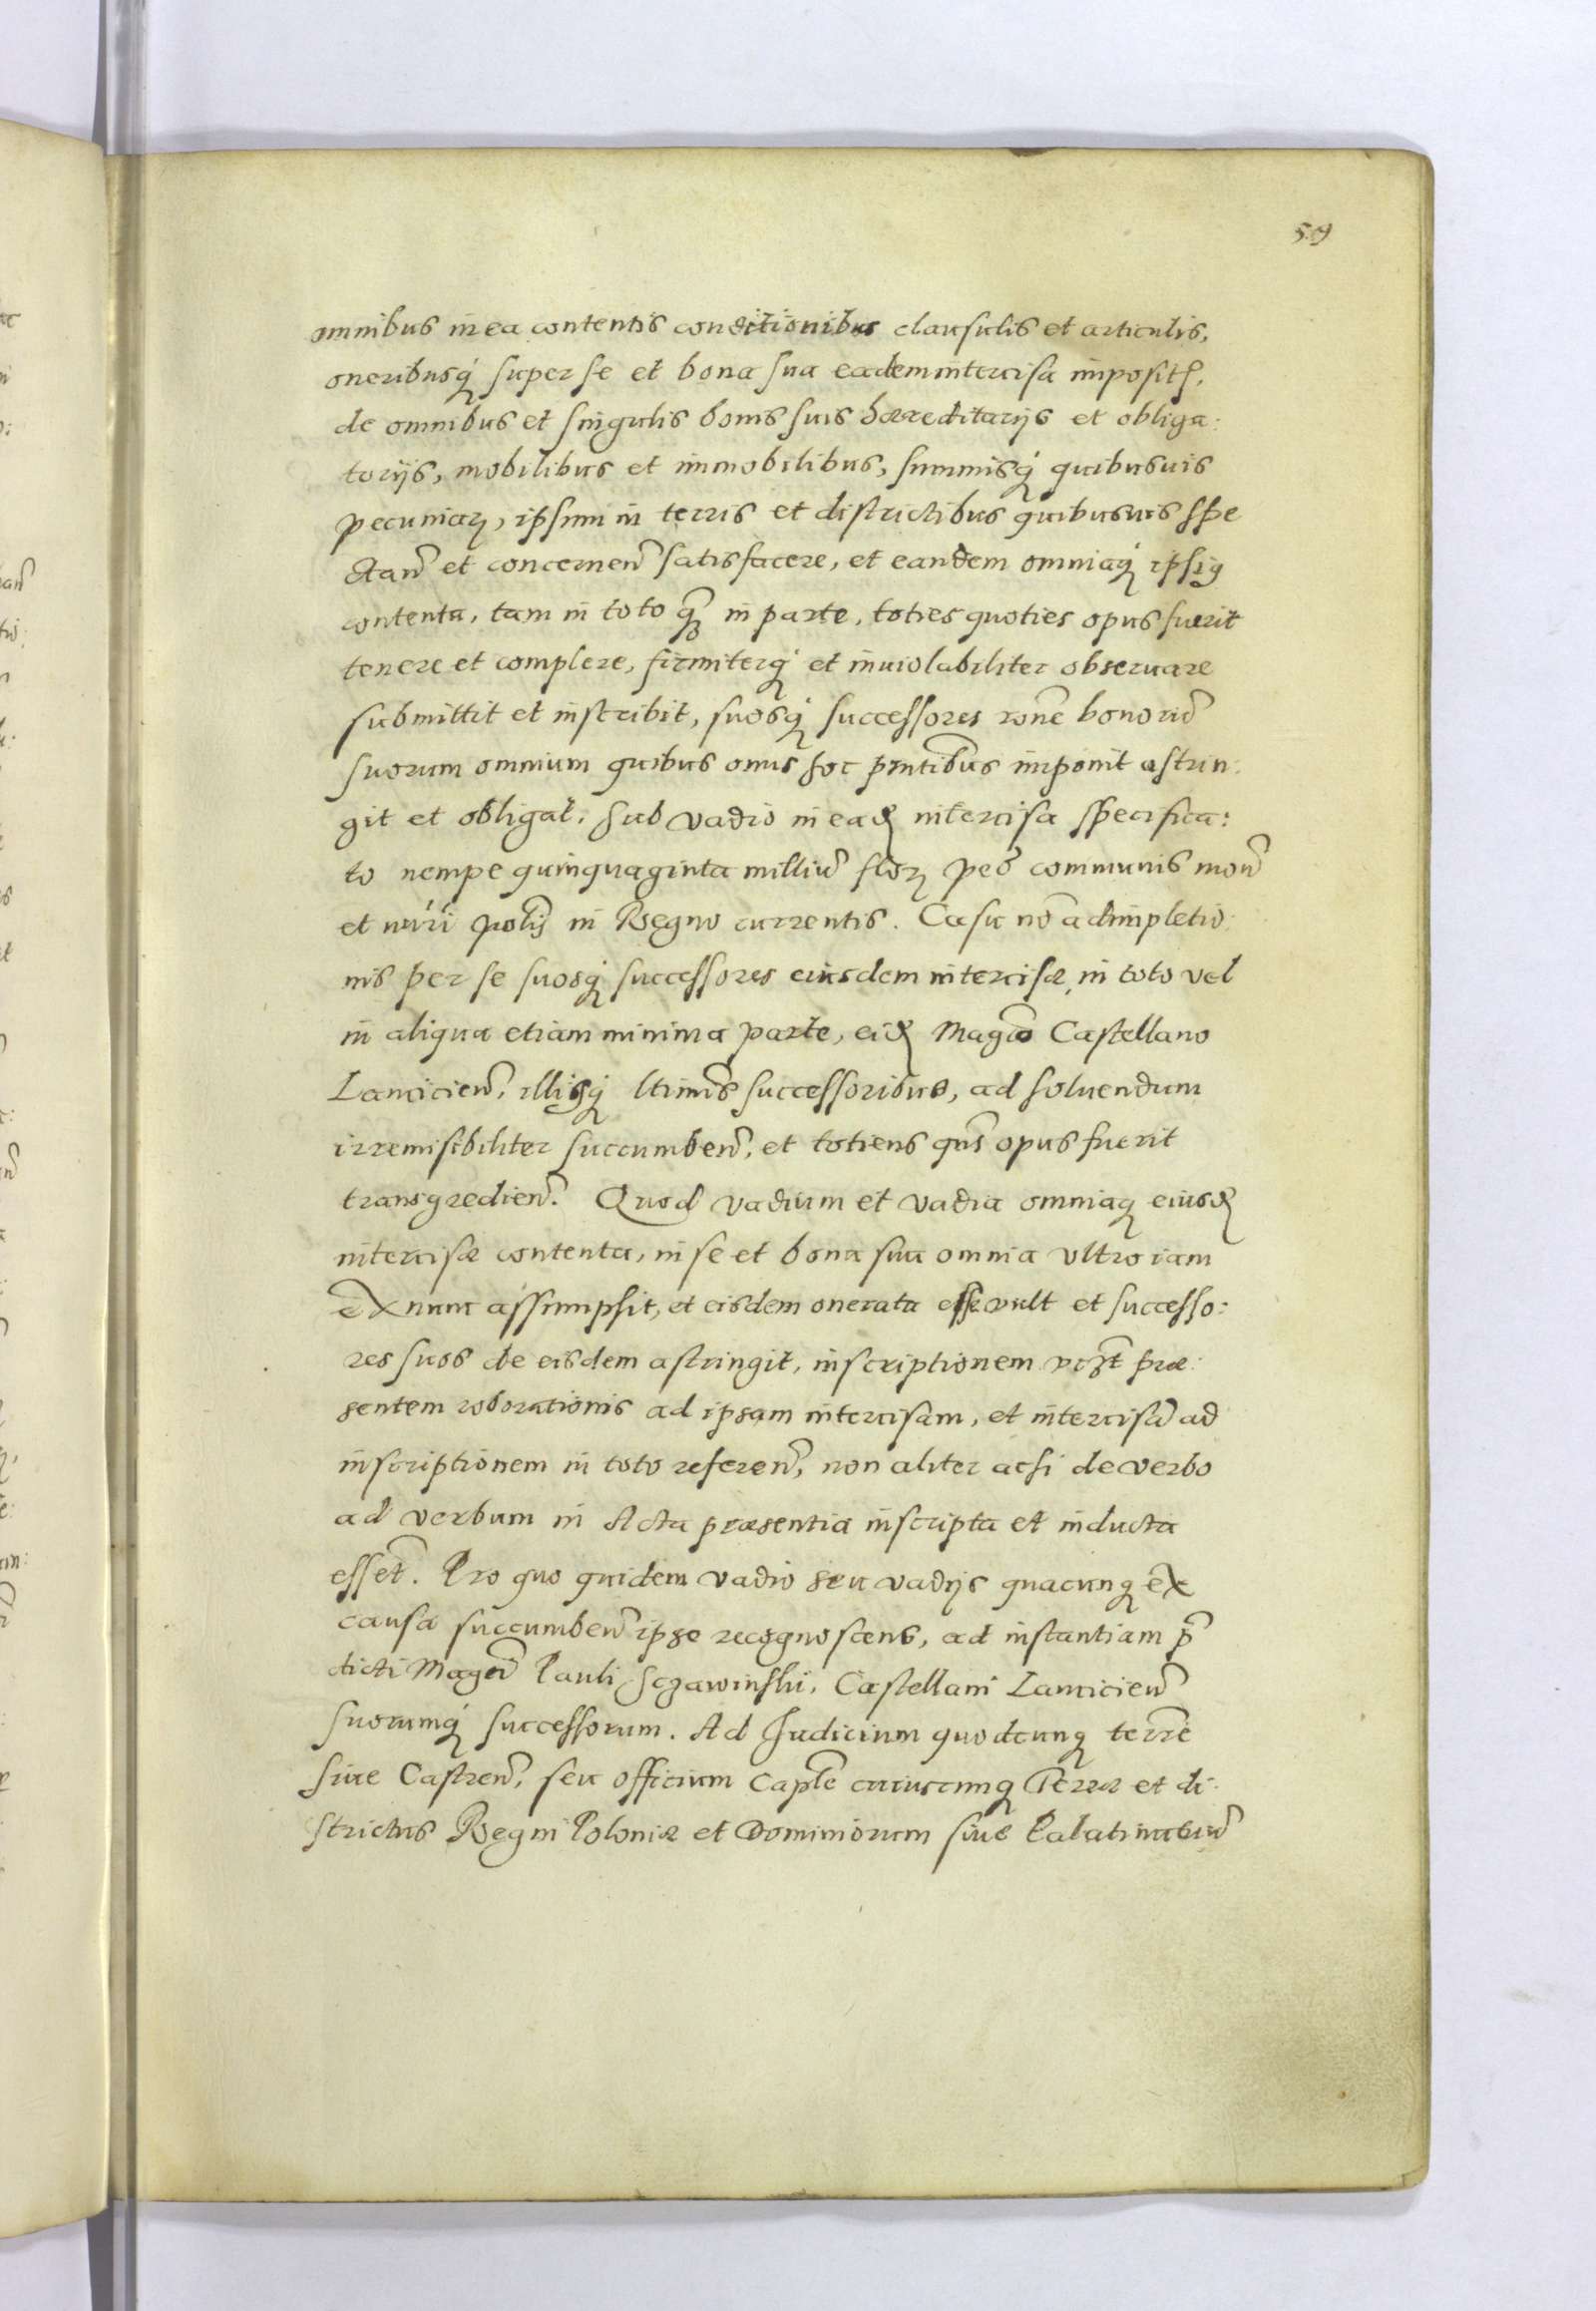 59
omnibus in ea contentis conditionibus clausulis et articulis,
oneribusq́ super se et bona sua eadem intercisa imposit,
de omnibus et singulis bonis suis hæreditarijs et obliga:
torijs, mobilibus et immobilibus, summisq́ quibusuis
pecuniaꝝ, ipsum in terris et districtibus quibusuis spe
ctanẽ et concernenẽ satisfacere, et eandem omniaq́
contenta, tam in toto ꝗ̃ in parte, toties quoties opus fuerit
tenere et complere, firmiterq́ et inuiolabiliter obseruare
submittit et inscribit, suosq́ successores rõne bonorũ
suorum omnium quibus onus hoc pñtibus imponit astrin:
git et obligat. Sub vadio in eaꝺ intercisa specifica:
to nempe quinquaginta milliũ floꝝ peõ communis moñ
et nũri polis in Regno currentis. Casu nõ adimpletio:
nis per se suosq́ successores eiusdem intercisæ, in toto vel
in aliqua etiam minima parte, eiꝺ Magco Castellano
Lancicieñ, illisq́ ltimis successoribus, ad soluendum
irremisibiliter succumbeñ, et totiens qũs opus fuerit
transgredieñ. Quod vadium et vadia omniaq́ eiusꝺ
intercisæ contenta, in se et bona sua omnia vltro iam
ex nunc assumpsit, et eisdem onerata esse vult et successo:
res suos de eisdem astringit, inscriptionem vczt præ:
sentem roborationis ad ipsam intercisam, et intercisã ad
inscriptionem in toto refereñ, non aliter acsi de verbo
ad verbum in Acta præsentia inscripta et inducta
esset. Pro quo quidem vadio seu vadijs quacunq́ ex
causa succumbeñ ipse recognoscens, ad instantiam p̃
dicti Magci Pauli Sczawinski, Castellani Lancicieñ
suorumq́ successorum. Ad Judicium quodcunq́ terrẽ
siue Castreñ, seu officium Caplẽ cuiuscunq́ Terræ et di:
strictus Regni Poloniæ et Dominiorum siue Palatinatuũ